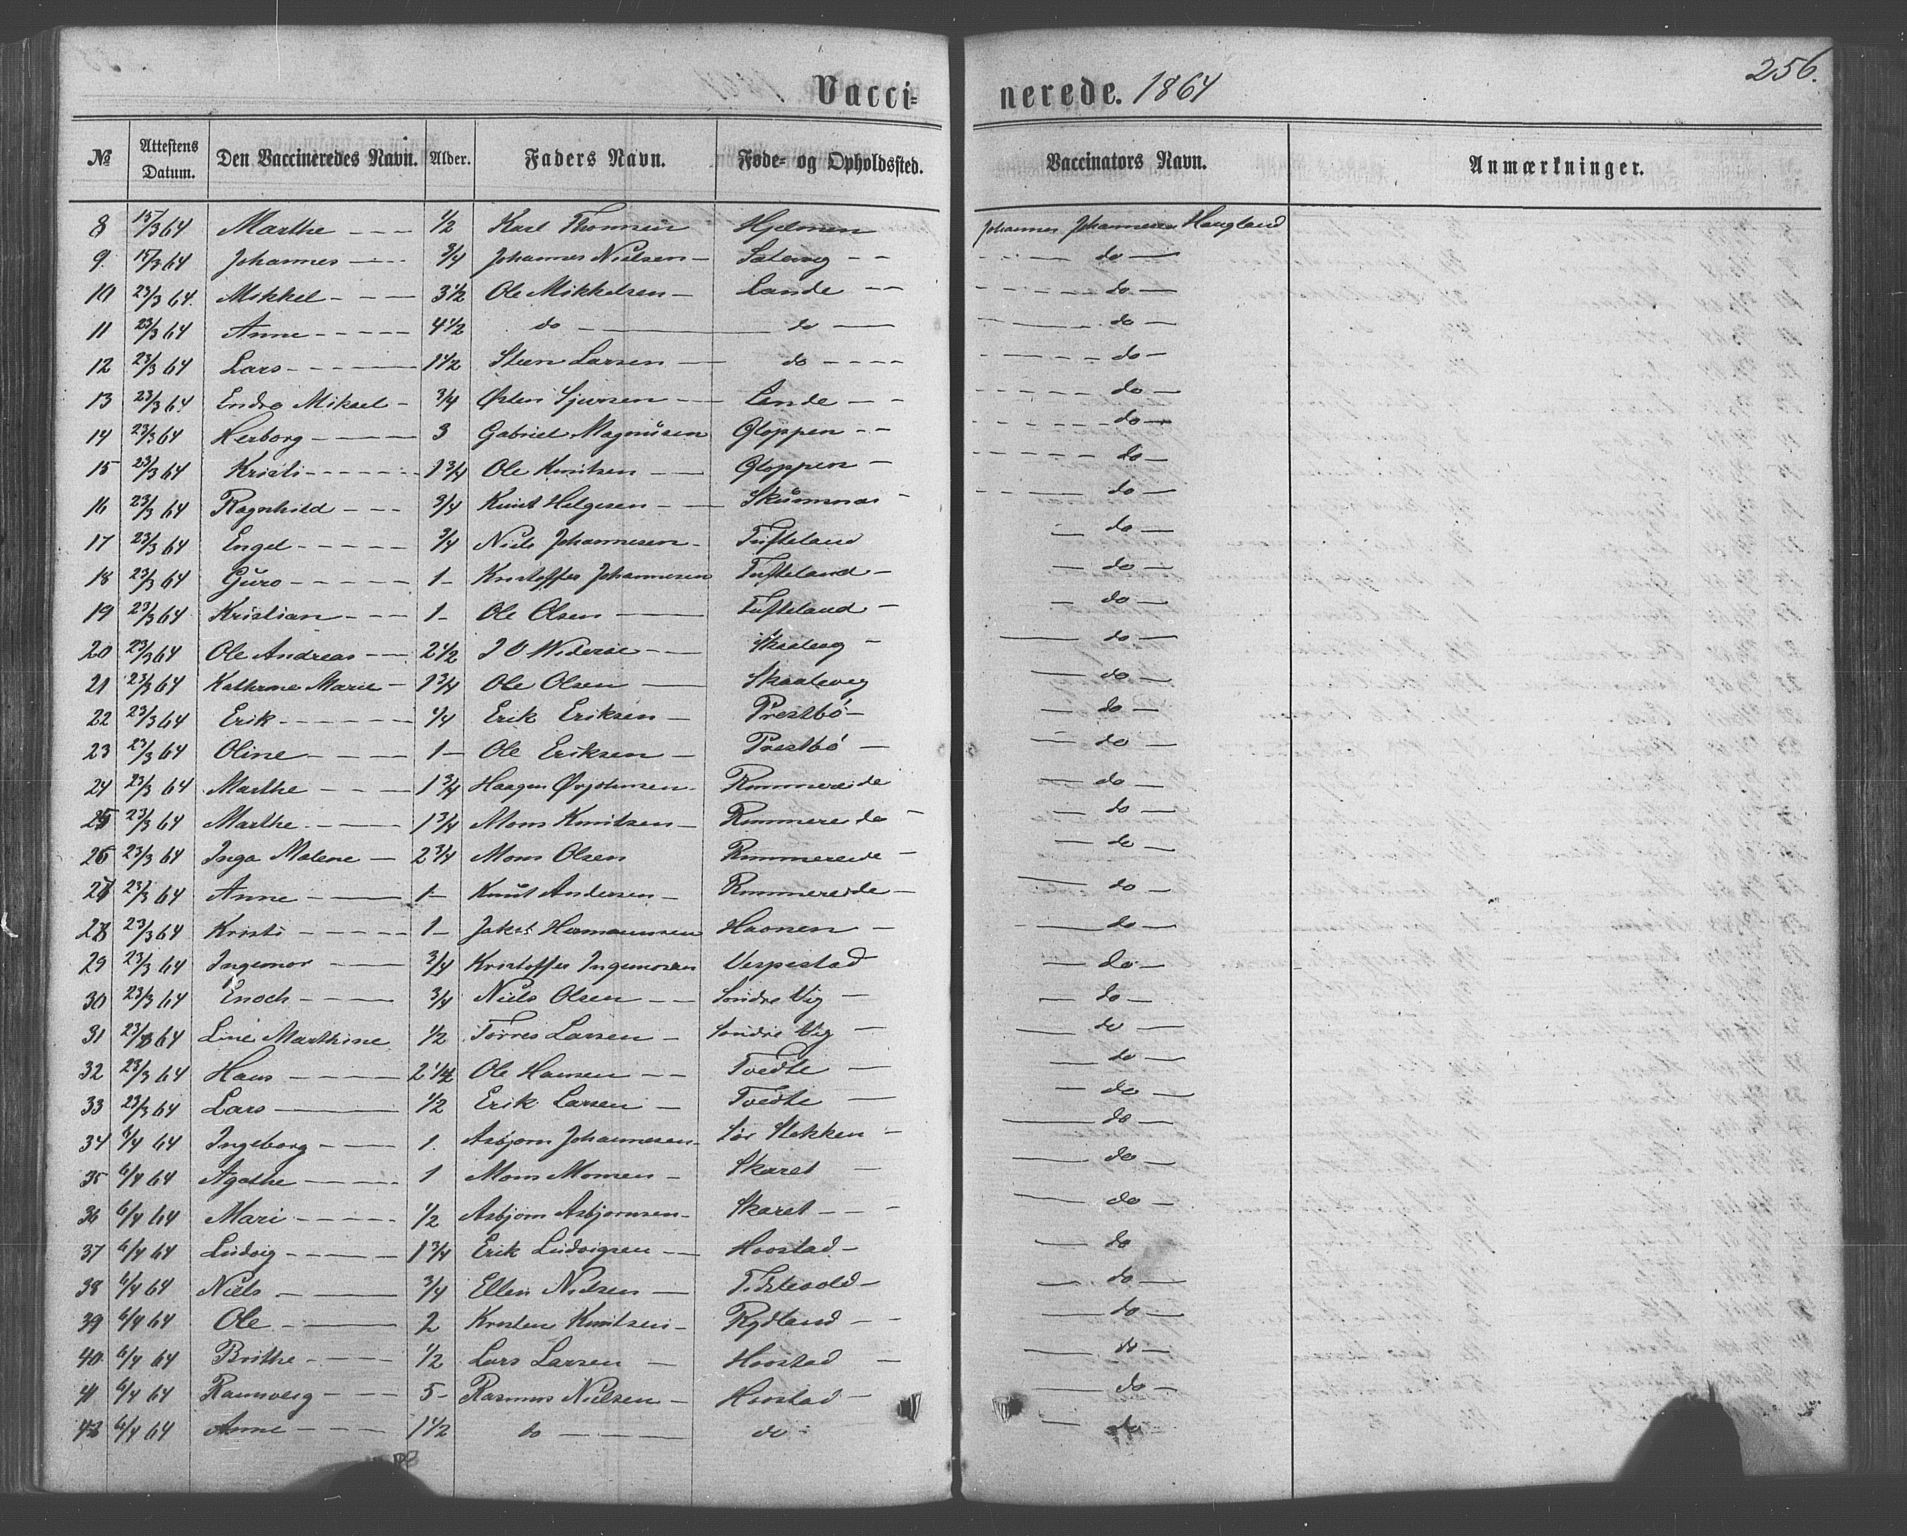 256.
Vacci= nerede. 1864
№ Attestens Datum. Den Vaccineredes Navn. Alder. Faders Navn. Føde= og Opholdssted. Vaccinators Navn. Anmærkninger.
8 15/3 64 Marthe 1/2 Karl Thomsen Hjelmen Johannes Johannesen Haugland
9. 15/3 64 Johannes 3/4 Johannes Nielsen do
10 23/3 64 Mikkel 3 1/2 Ole Mikkelsen Lande do
11 23/3 64 Anne 4 1/2 do do do
12 23/3 64 Lars 1 1/2 Steen Larsen do do
13 23/3 64 Endre Mikael 3/4 Østen Sjursen Lande do
14 23/3 64 Herborg 3 Gabriel Magnüsen Gloppen do
15 23/3 64 Kristi 1 3/4 Ole Knutsen Gloppen do
16 23/3 64 Ragnhild 3/4 Knut Helgesen Skumsnas do
17 23/3 64 Engel 3/4 Niels Johannesen Tufteland do
18 23/3 64 Guro 1 Kristoffer Johannesen Tufteland do
19 23/3 64 Kristian 1 Ole Olsen Tufteland do
20 23/3 64 Ole Andreas 2 1/2 J O Widerøe Skaalevig do
21 23/3 64 Kathrine Marie 1 3/4 Ole Olsen Skaalevig do
22 23/3 64 Erik 1/4 Erik Eriksen Prestbø do
23 23/3 64 Oline 1 Ole Eriksen Prestbø do
24 23/3 64 Marthe 1 3/4 Haagen Rimmereide do
25 23/3 64 Marthe 1 3/4 Mons Knutsen Rimmereide do
26 23/3 64 Inga Malene 2 3/4 Mons Olsen Rimmereide do
27 23/3 64 Anne 1 Knut Andersen Rimmereide do
28 23/3 64 Kristi 1 Jakob Hermannsen Haonen do
29 23/3 64 Ingemor 3/4 Kristoffer Ingemorsen Vespestad do
30 23/3 64 Enoch 3/4 Niels Olsen Søndre Vig do
31 23/3 64 Line Marthine 1/2 Torres Larsen Søndre Vig do
32 23/3 64 Hans 2 1/2 Ole Hansen Tvedte do
33 23/3 64 Lars 1/2 Erik Larsen Tvedte do
34 6/4 64 Ingeborg 1. Asbjørn Johannesen Sør Stokken do
35 6/4 64 Agathe 1 Mons Monsen Skaret do
36 6/4 64 Mari 1/2 Asbjørn Asbjørnsen Skaret do
37 6/4 64 Ludvig 1 3/4 Erik Ludvigsen Hovstad do
38 6/4 64 Niels 3/4 Elling Nilsen do
39 6/4 64 Ole 2 Kristen Knutsen Rydland do
40 6/4 64 Brithe 1/2 Lars Larsen Hovstad do
41 6/4 64 Rannveig 5 Rasmus Nielsen Hovstad do
42 6/4 64 Anne 1 1/2 do do do